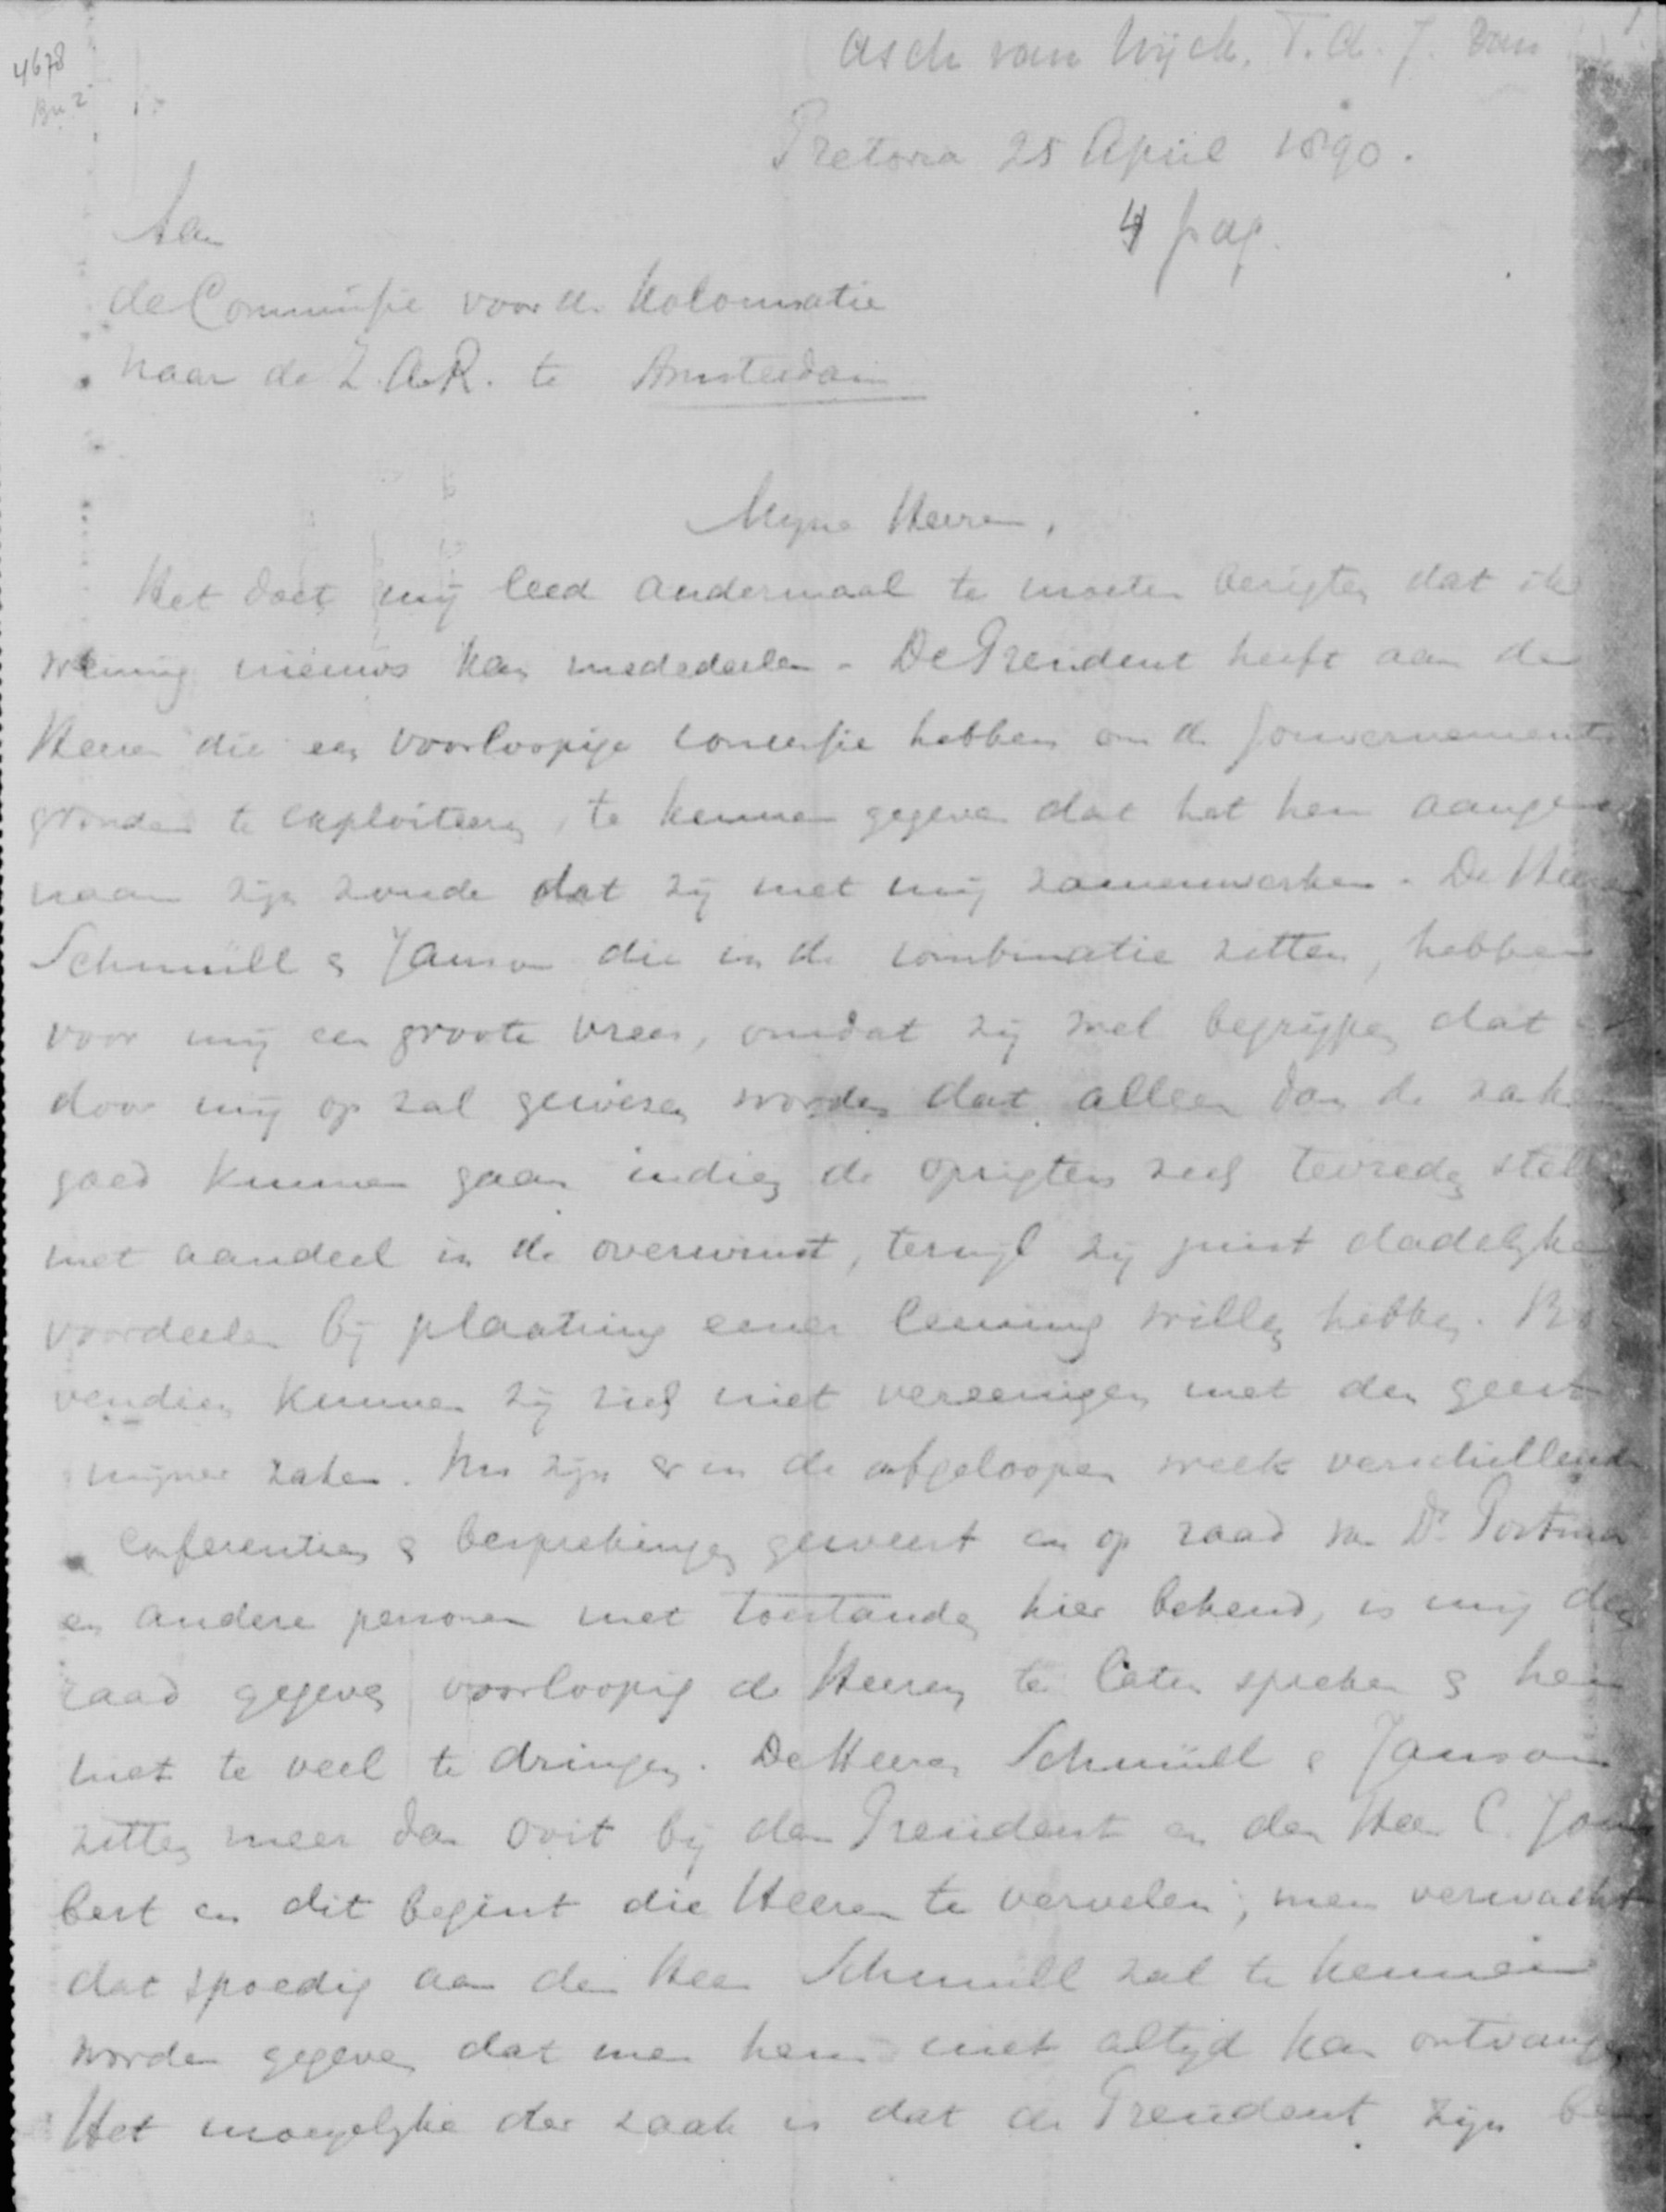 4678
Asch van Wijck, T.A.J. van
Pretoria 25 April 1890.
4 pag.
Aan
de Commissie voor de Kolonisatie
naar de Z.A.R. te Amsterdam
Myne Heeren,
Het doet mij leed andermaal te moeten berigten dat ik
weinig nieuws kan mededeelen. De President heeft aan de
Heeren die een voorloopige concessie hebben om de Gouvernements
gronden te exploiteeren, te kennen gegeven dat het hem aange
naam zijn zoude dat zij met mij zamenwerken. De Heeren
Schmüll & Janson die in de combinatie zitten, hebben
voor mij een groote vrees, omdat zij wel begrijpen dat
door mij op zal gewezen worden dat alleen dan de zaken
goed kunnen gaan indien de oprigters zich tevreden stellen
met aandeel in de overwinst, terwijl zij juist dadelijke
voordeelen bij plaatsing eener leening willen hebben. Bo
vendien kunnen zij zich niet vereenigen met den geest
mijner zaken. Nu zijn er in de afgeloopen week verschillende
conferenties & besprekingen geweest en op raad van Dr. Postma
en andere personen met toestanden hier bekend, is mij den
raad gegeven voorloopig de Heeren te laten spreken & hen
niet te veel te dringen. De Heeren Schmüll & Janson
zitten meer dan ooit bij den President en den Heer C. Jou
bert en dit begint die Heeren te vervelen; men verwacht
dat spoedig aan den Heer Schmüll zal te kennen
worden gegeven dat men hem niet altijd kan ontvangen
Het moeyelyke der zaak is dat de President zijn